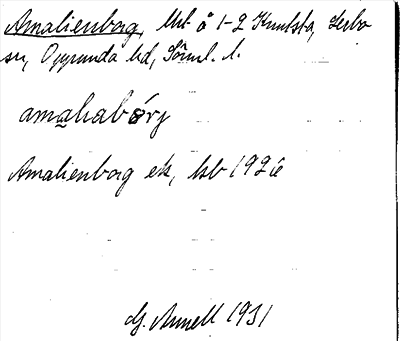 Amalienborg, lht å 1-2 Knutsta, Lerbo
sn, Oppunda hd, Söml. l.
amaliabórj
Amalienborg ek, hsb 1926
G. Annell 1931